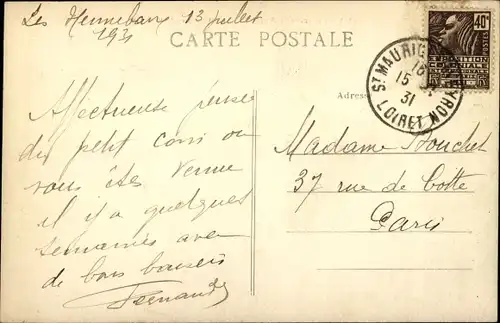 Les Hennebans 13 juillet
1931
CARTE POSTALE
Affectueuse pensée
du petit coin ou
vous êtes venue
il y a quelques
semaines avec
de bons baisers
Fernande
Adres
Madame Bouchet
37 rue de Cotte
Paris
ST MAURICE
LOIRET
15
31
40c